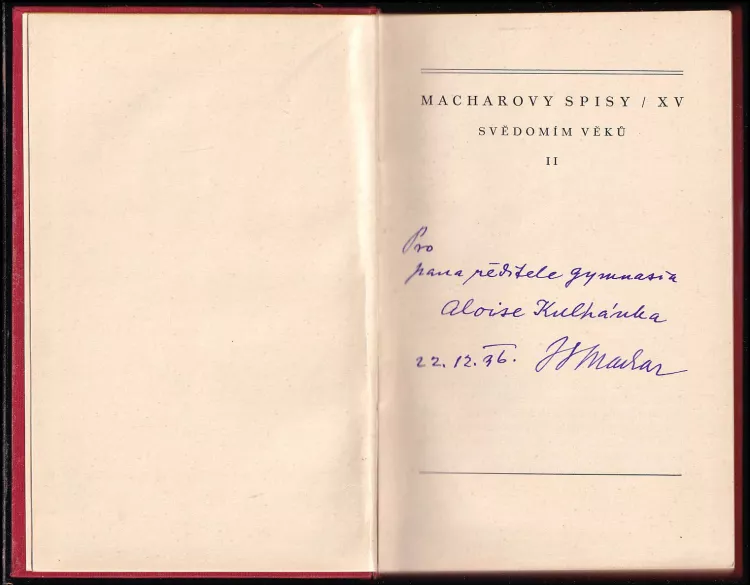 MACHAROVY SPISY / XV
SVĚDOMÍM VĚKŮ
II
Pro
pana ředitele gymnasia
Aloise Kulhánka
22. 12. 36. JSMachar